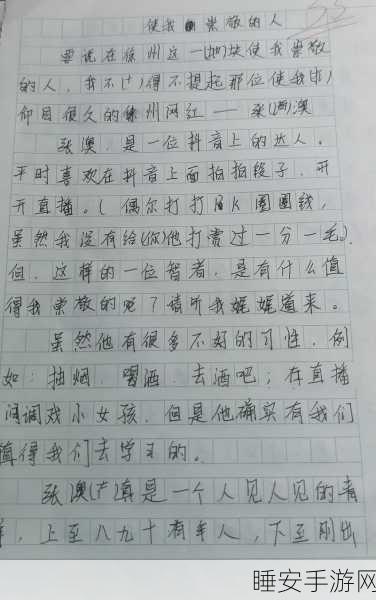 使我崇敬的人
要说在徐州这一(地)块使我崇敬
的人，我不(得)得不提起那位使我
仰目很久的徐州网红——张(澳)澳
张澳，是一位抖音上的达人。
平时喜欢在抖音上面拍拍段子，开
开直播。（偶尔打打PK圈圈钱，
虽然我没有给(你)他打赏过一分一毛）.
但，这样的一位智者，是有什么值
得我崇敬的呢？请听我娓娓道来。
虽然他有很多不好的习性，例
如：抽烟、喝酒、去酒吧；在直播
间调戏小女孩，但是他确实有我们
值得我们去学习的。
张澳真是一个人见人见的青
年，上至八九十有年人，下至刚出
睡安手游网